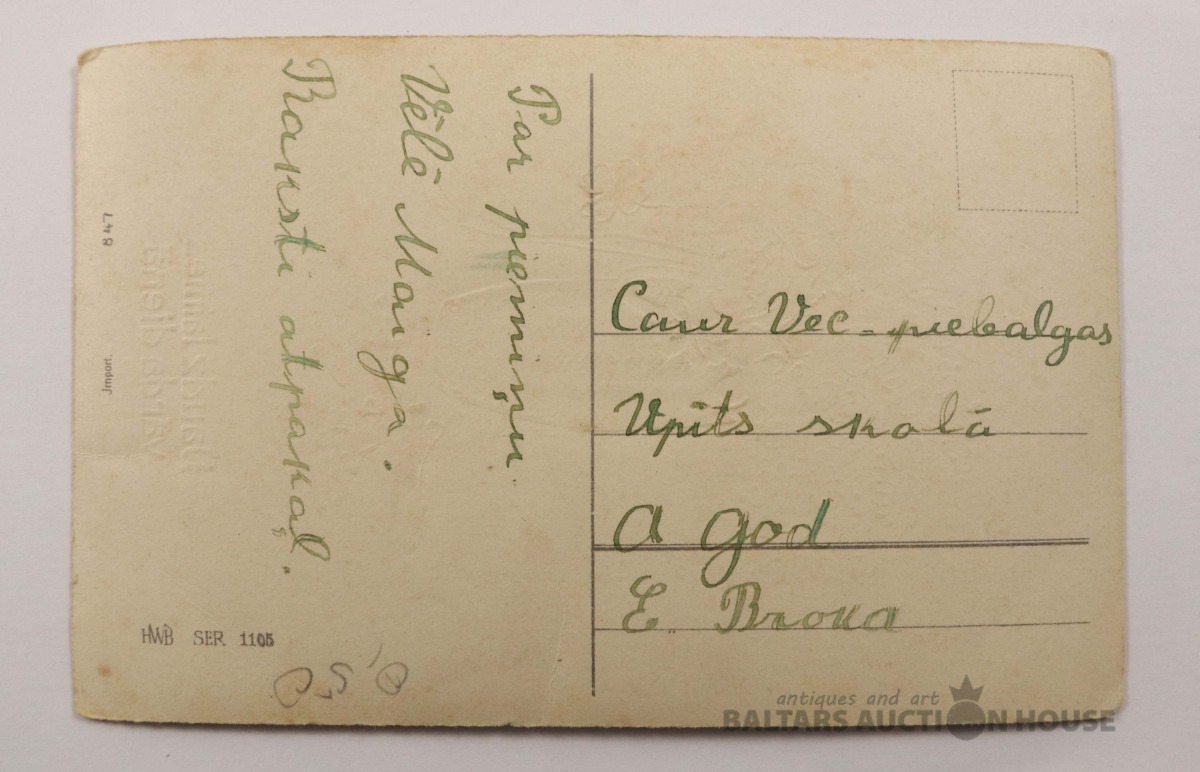 Par piemiņu.
Vēlē Maiga.
Raksti atpakaļ.
Caur Vec-piebalgas
Upīts skolā
A god
E. Broka
847
Import.
HWB SER 1105
antiques and art
BALTARS AUCTION HOUSE